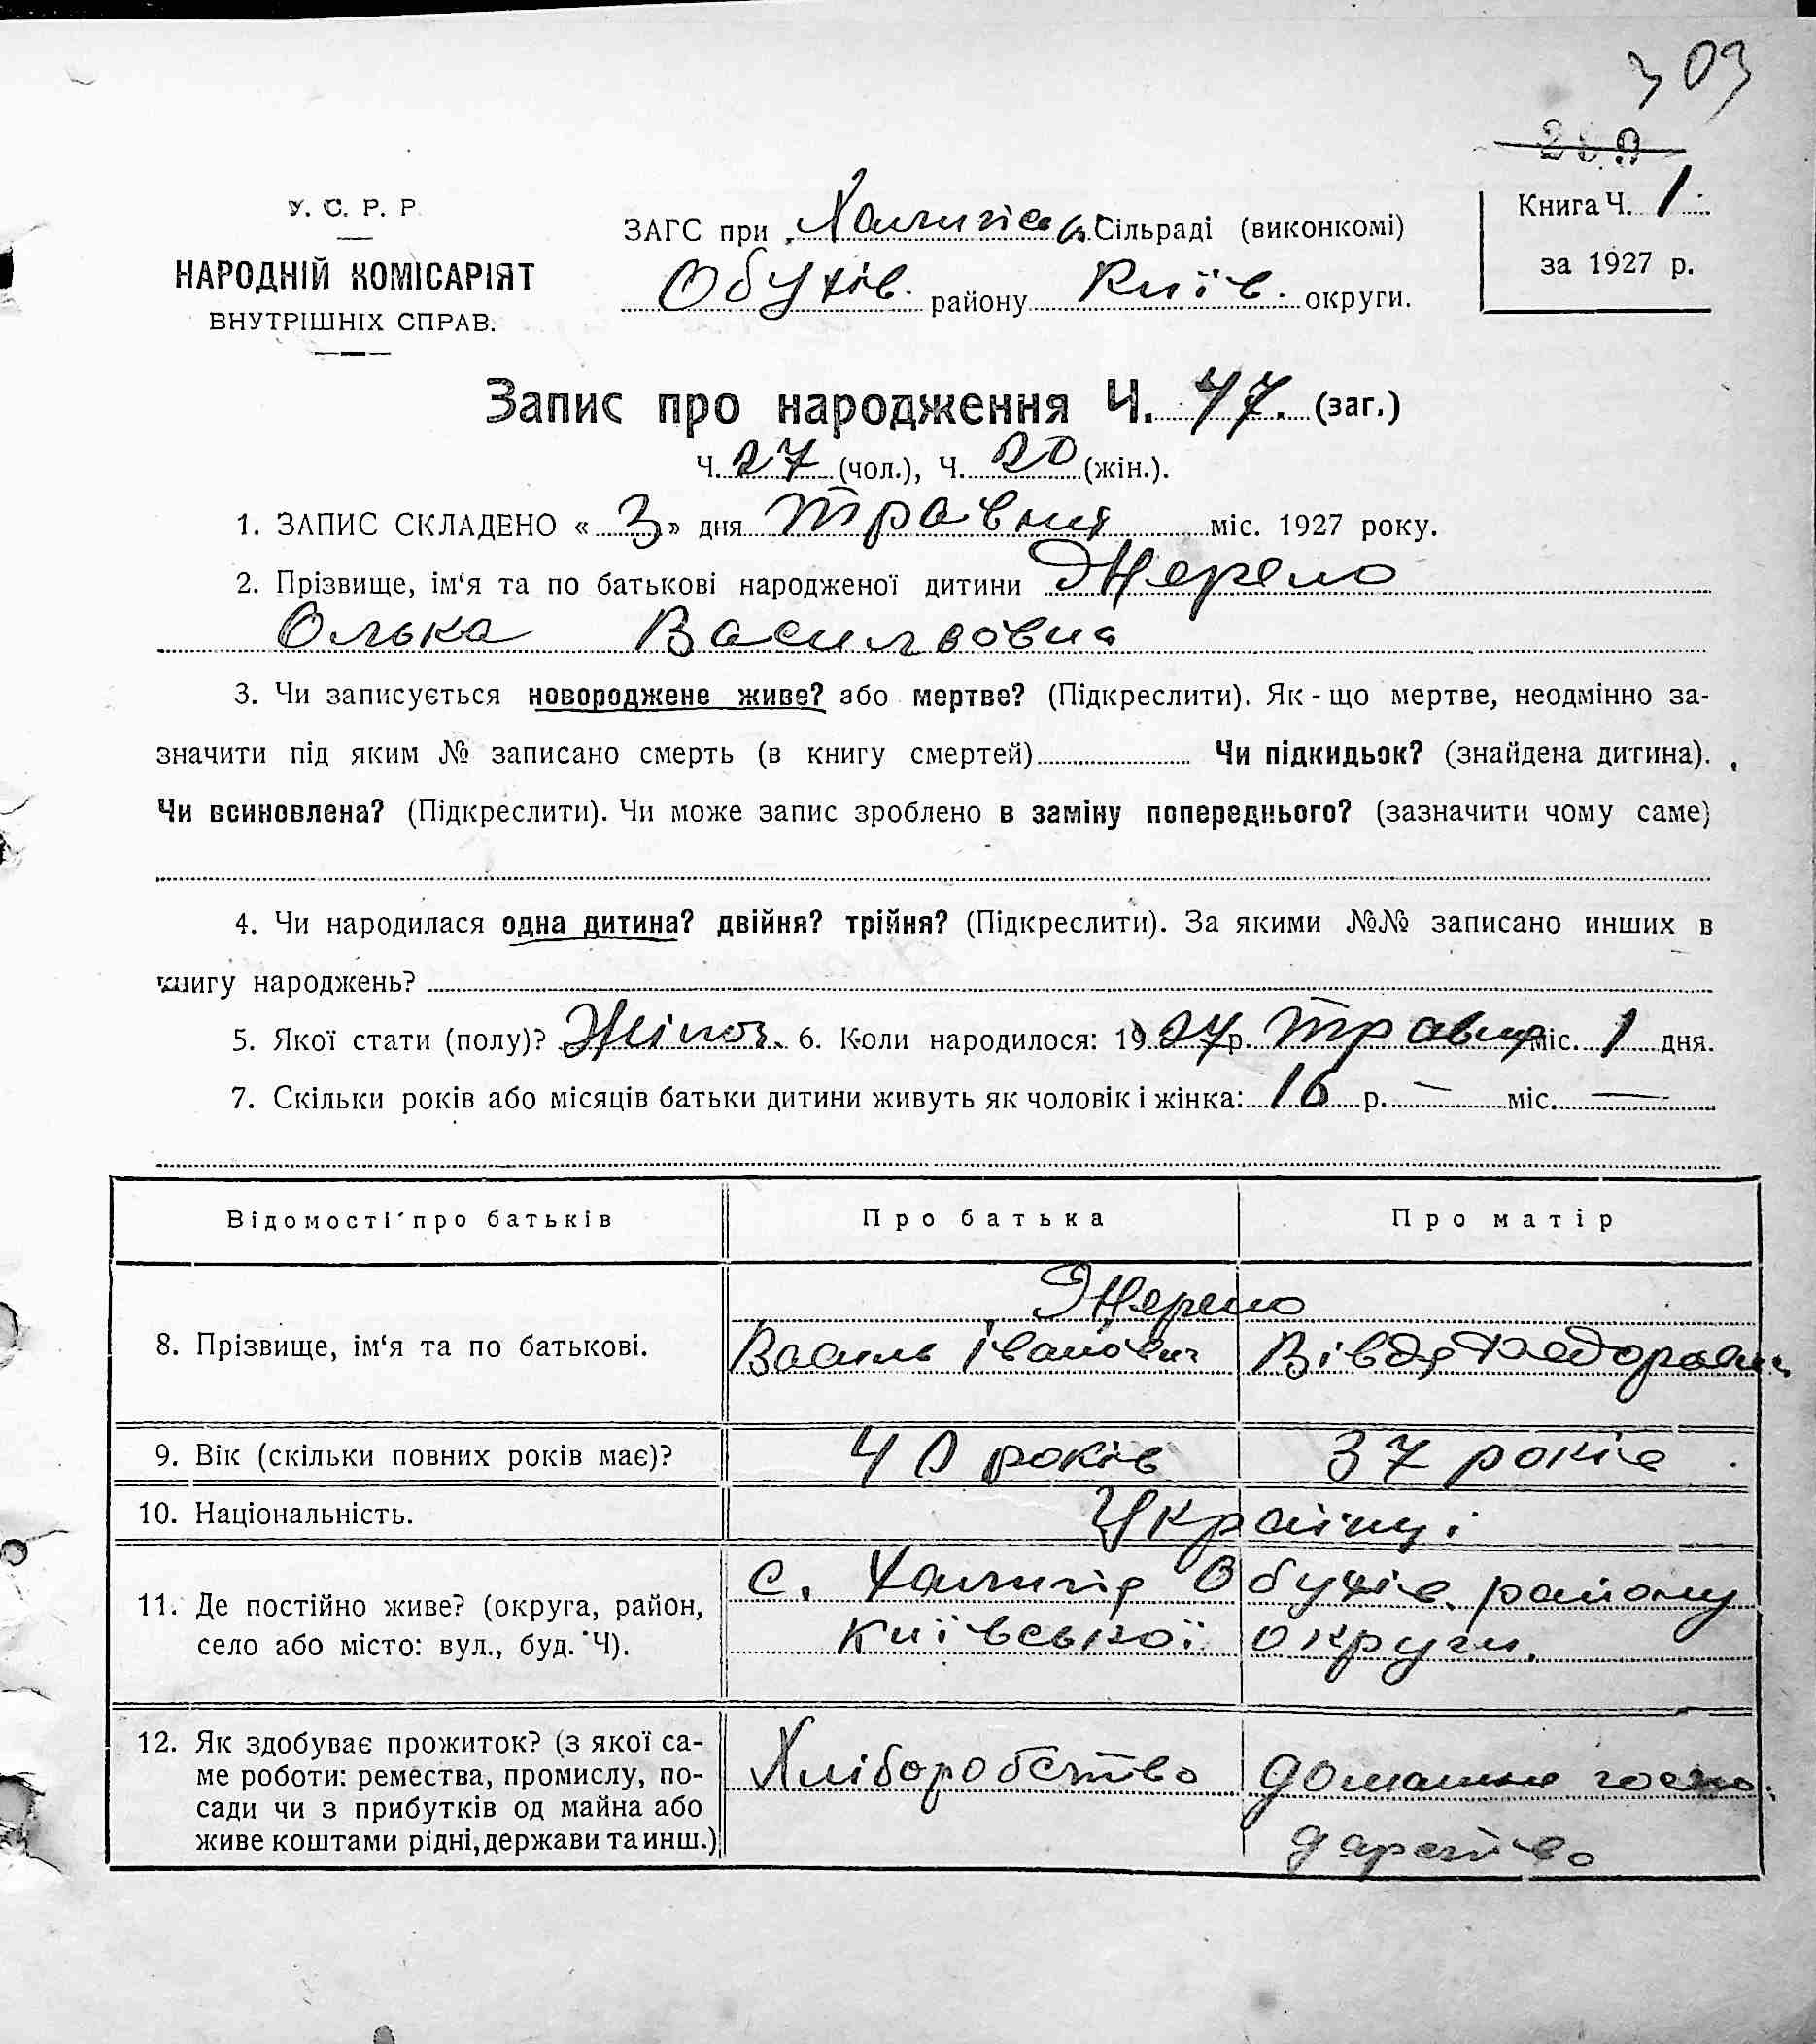 309
289
У. С. Р. Р.
НАРОДНІЙ КОМІСАРІЯТ
ВНУТРІШНІХ СПРАВ.
ЗАГС при Халипськ. Сільраді (виконкомі)
Обухів. району Київ. округи.
Книга Ч. 1
за 1927 р.
Запис про народження Ч. 47. (заг.)
Ч. 27 (чол.), Ч. 20 (жін.).
1. ЗАПИС СКЛАДЕНО « 3 » дня травня міс. 1927 року.
2. Прізвище, ім‘я та по батькові народженої дитини Джерело
Олька Васильвовна
3. Чи записується новороджене живе? або мертве? (Підкреслити). Як - що мертве, неодмінно за-
значити під яким № записано смерть (в книгу смертей) Чи підкидьок? (знайдена дитина).
Чи всиновлена? (Підкреслити). Чи може запис зроблено в заміну попереднього? (зазначити чому саме)
4. Чи народилася одна дитина? двійня? трійня? (Підкреслити). За якими №№ записано инших в
книгу народжень?
5. Якої стати (полу)? Жіноч. 6. Коли народилося: 1927 р. травня міс. 1 дня.
7. Скільки років або місяців батьки дитини живуть як чоловік і жінка: 16 р. — міс. —
Відомості про батьків Про батька Про матір
Джерело
8. Прізвище, ім‘я та по батькові. Василь Іванович Вівдя Федоровна
9. Вік (скільки повних років має)? 40 років 37 років
10. Національність. Українці
с. Халипя Обухів. району
11. Де постійно живе? (округа, район,
село або місто: вул., буд. Ч). Київської округи.
12. Як здобуває прожиток? (з якої са-
ме роботи: ремества, промислу, по- Хліборобство домашнє госпо-
сади чи з прибутків од майна або
живе коштами рідні, держави та инш.) дарство